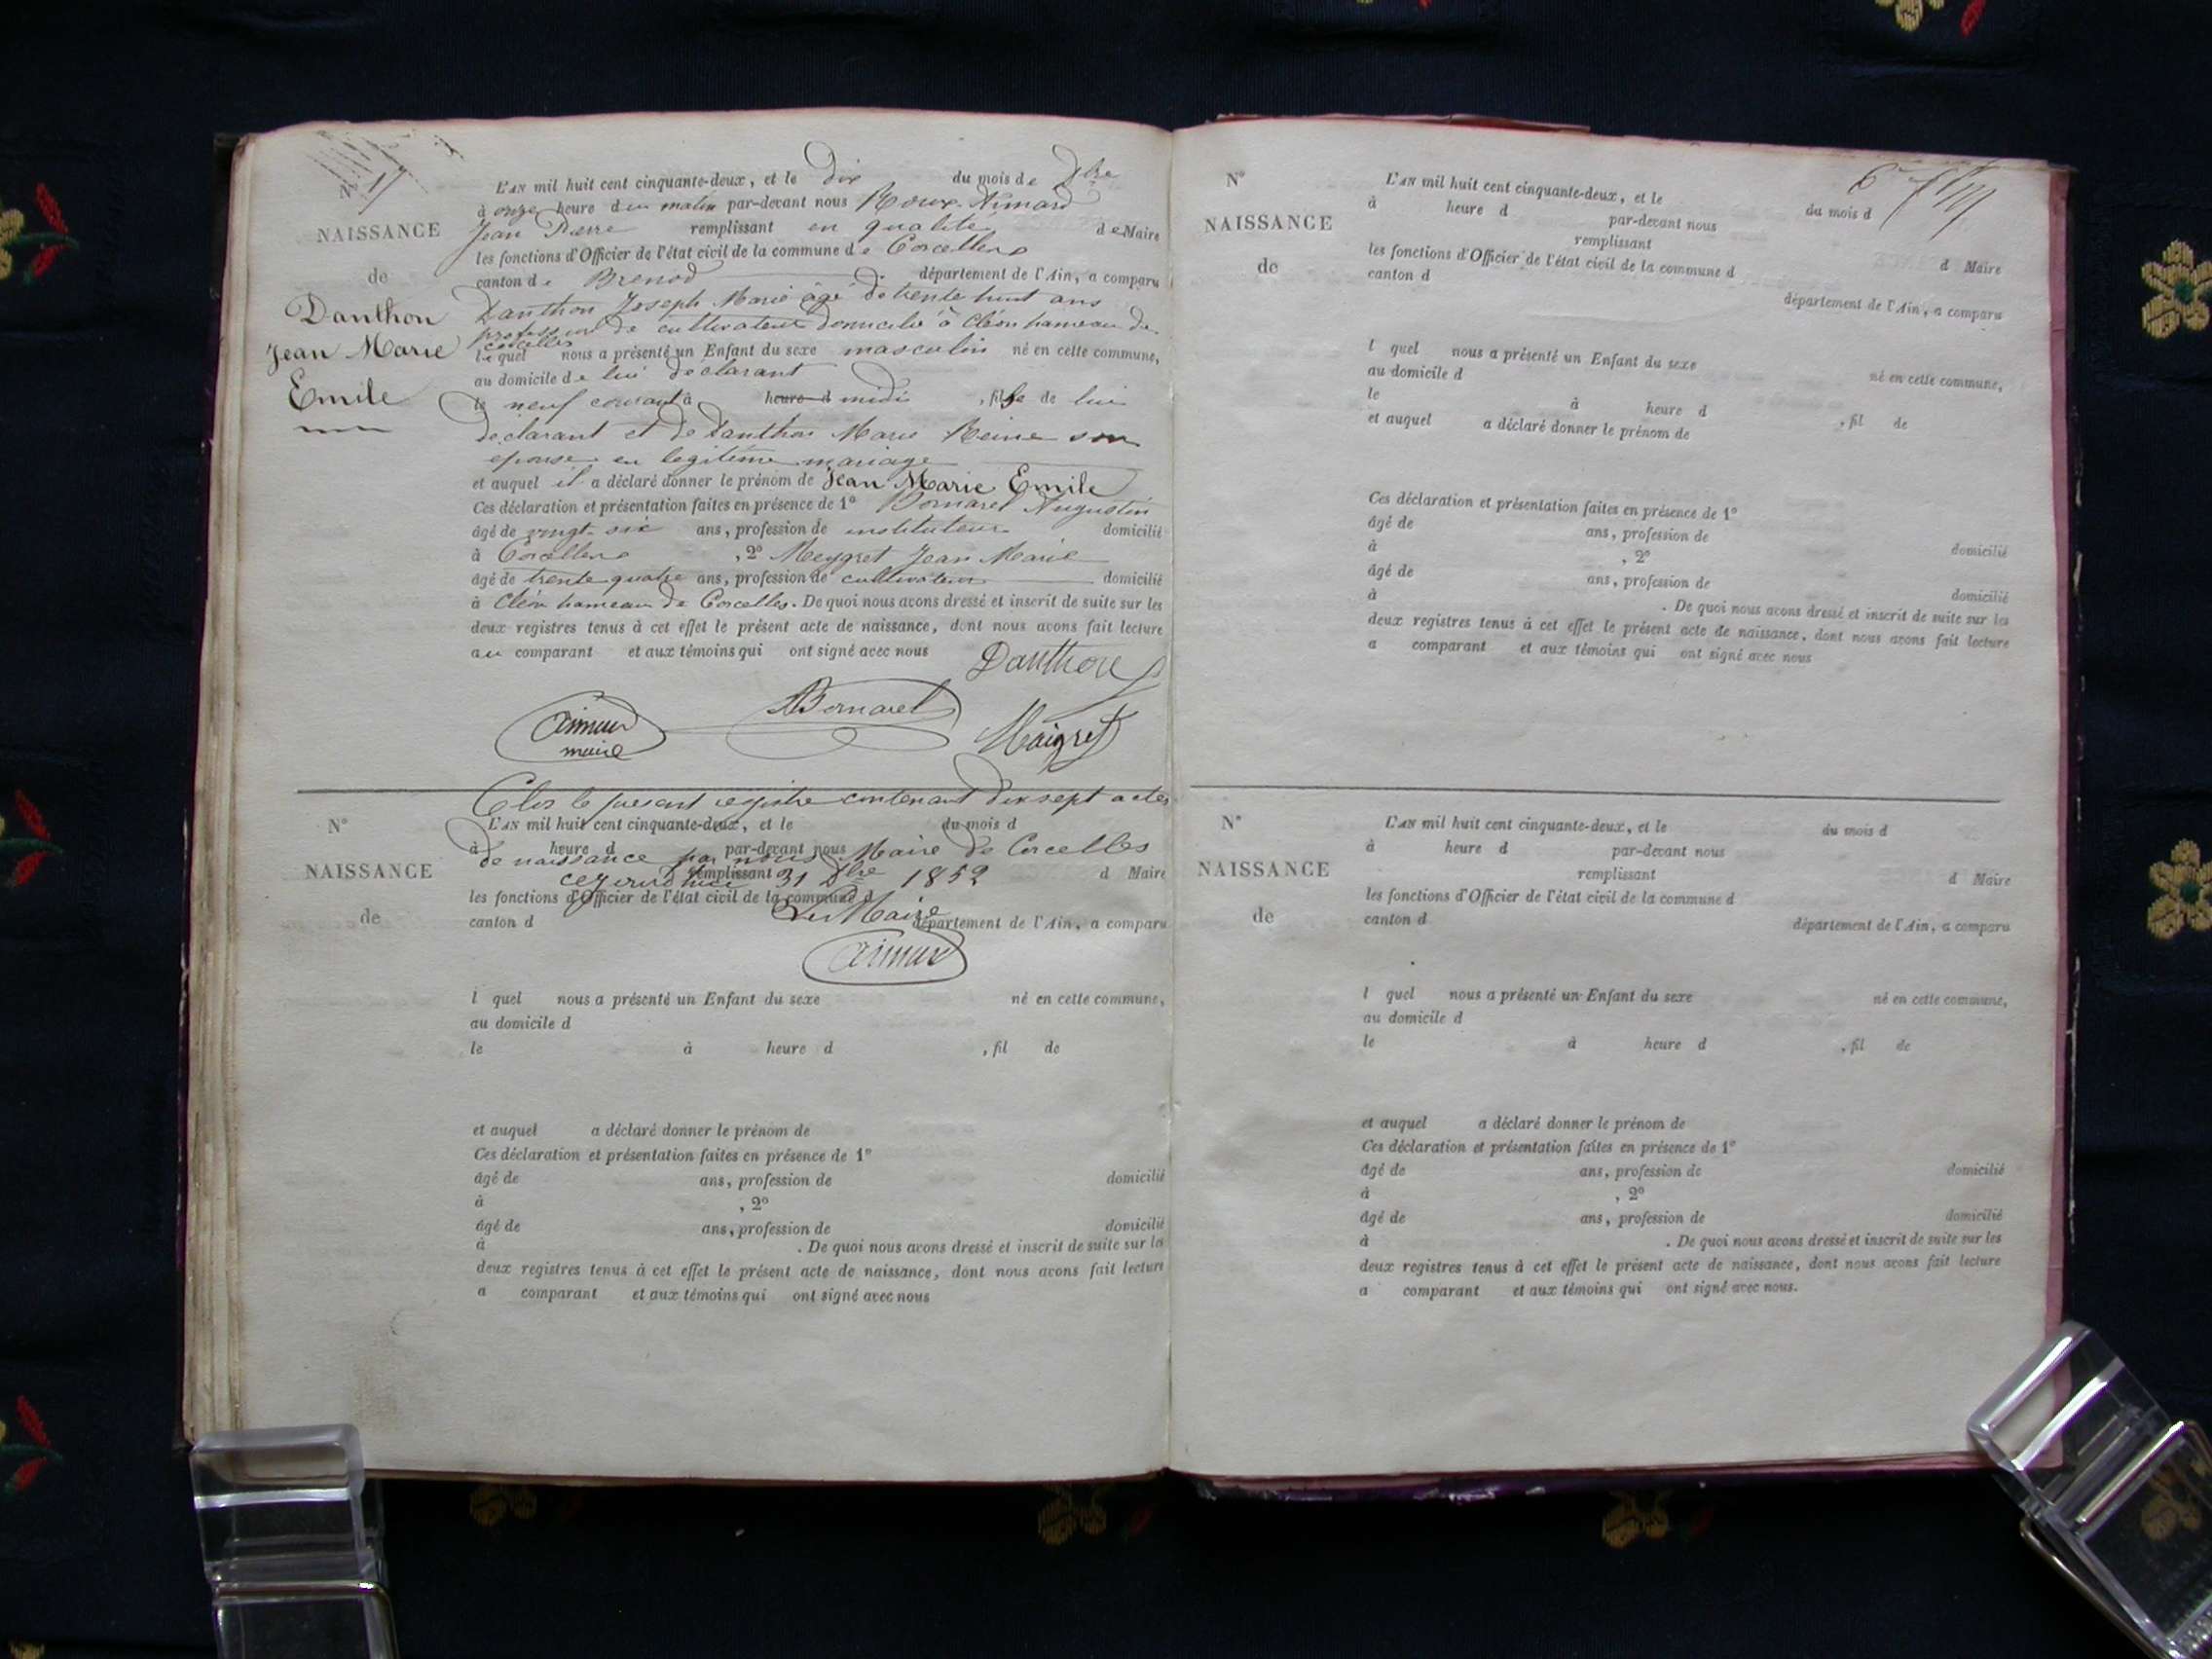 N° 17
NAISSANCE
de
Danthon
Jean Marie
Emile
L'AN mil huit cent cinquante-deux, et le dix du mois de Xbre
à onze heure du matin par-devant nous Roux-Aimard
Jean Pierre remplissant en qualité de Maire
les fonctions d'Officier de l'état civil de la commune de Corcelles
canton de Brenod département de l'Ain, a comparu
Danthon Joseph Marie âgé de trente huit ans
profession de cultivateur domicilié à Cléon hameau de
corcelles
lequel nous a présenté un Enfant du sexe masculin né en cette commune,
au domicile de lui déclarant
le neuf courant à heure d midi , fils de lui
déclarant et de Danthon Marie Reine son
épouse en légitime mariage
et auquel il a déclaré donner le prénom de Jean Marie Emile
Ces déclaration et présentation faites en présence de 1° Bornarel Augustin
âgé de vingt-six ans, profession de instituteur domicilié
à Corcelles , 2° Meygret Jean Marie
âgé de trente quatre ans, profession de cultivateur domicilié
à Cléon hameau de Corcelles. De quoi nous avons dressé et inscrit de suite sur les
deux registres tenus à cet effet le présent acte de naissance, dont nous avons fait lecture
au comparant et aux témoins qui ont signé avec nous
Danthon
Aimard
maire
Bornarel
Maigret
Clos le présent registre contenant dix sept actes
de naissance par nous Maire de Corcelles
cejourd'hui 31 Xbre 1852
Le Maire
Aimard
N°
NAISSANCE
de
L'AN mil huit cent cinquante-deux, et le du mois d
à heure d par-devant nous
remplissant d Maire
les fonctions d'Officier de l'état civil de la commune d
canton d département de l'Ain, a comparu
l quel nous a présenté un Enfant du sexe né en cette commune,
au domicile d
le à heure d , fil de
et auquel a déclaré donner le prénom de
Ces déclaration et présentation faites en présence de 1°
âgé de ans, profession de domicilié
à , 2°
âgé de ans, profession de domicilié
à . De quoi nous avons dressé et inscrit de suite sur les
deux registres tenus à cet effet le présent acte de naissance, dont nous avons fait lecture
a comparant et aux témoins qui ont signé avec nous
N°
NAISSANCE
de
L'AN mil huit cent cinquante-deux, et le du mois d
à heure d par-devant nous
remplissant d Maire
les fonctions d'Officier de l'état civil de la commune d
canton d département de l'Ain, a comparu
l quel nous a présenté un Enfant du sexe né en cette commune,
au domicile d
le à heure d , fil de
et auquel a déclaré donner le prénom de
Ces déclaration et présentation faites en présence de 1°
âgé de ans, profession de domicilié
à , 2°
âgé de ans, profession de domicilié
à . De quoi nous avons dressé et inscrit de suite sur les
deux registres tenus à cet effet le présent acte de naissance, dont nous avons fait lecture
a comparant et aux témoins qui ont signé avec nous
N°
NAISSANCE
de
L'AN mil huit cent cinquante-deux, et le du mois d
à heure d par-devant nous
remplissant d Maire
les fonctions d'Officier de l'état civil de la commune d
canton d département de l'Ain, a comparu
l quel nous a présenté un Enfant du sexe né en cette commune,
au domicile d
le à heure d , fil de
et auquel a déclaré donner le prénom de
Ces déclaration et présentation faites en présence de 1°
âgé de ans, profession de domicilié
à , 2°
âgé de ans, profession de domicilié
à . De quoi nous avons dressé et inscrit de suite sur les
deux registres tenus à cet effet le présent acte de naissance, dont nous avons fait lecture
a comparant et aux témoins qui ont signé avec nous.